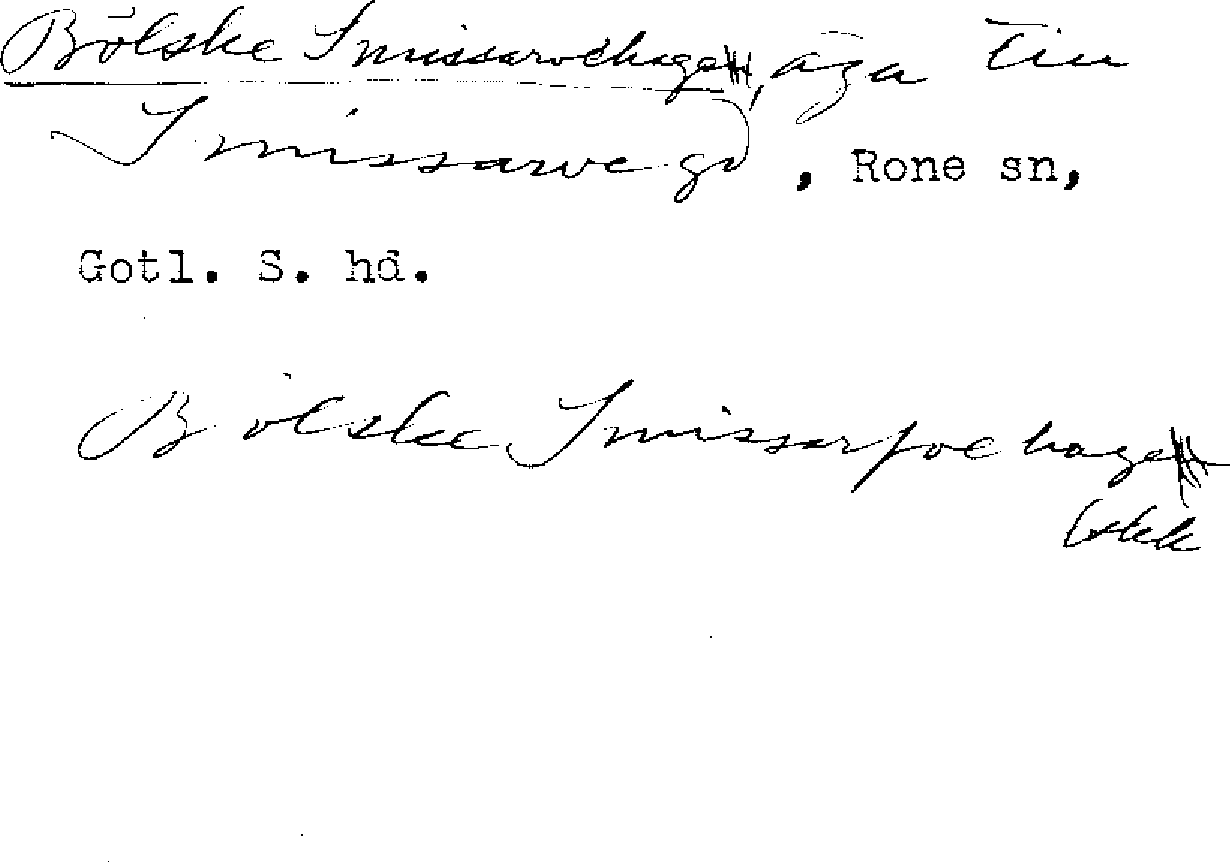 Bölske Smissarvehage, äga till
Smissarve gd, Rone sn,
Gotl. S. hd.
Bölske Smissarfve hage